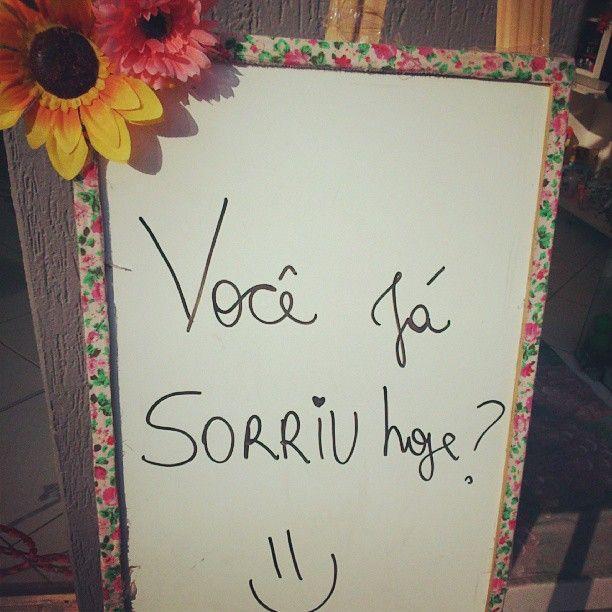 Você já
SORRiU hoje?